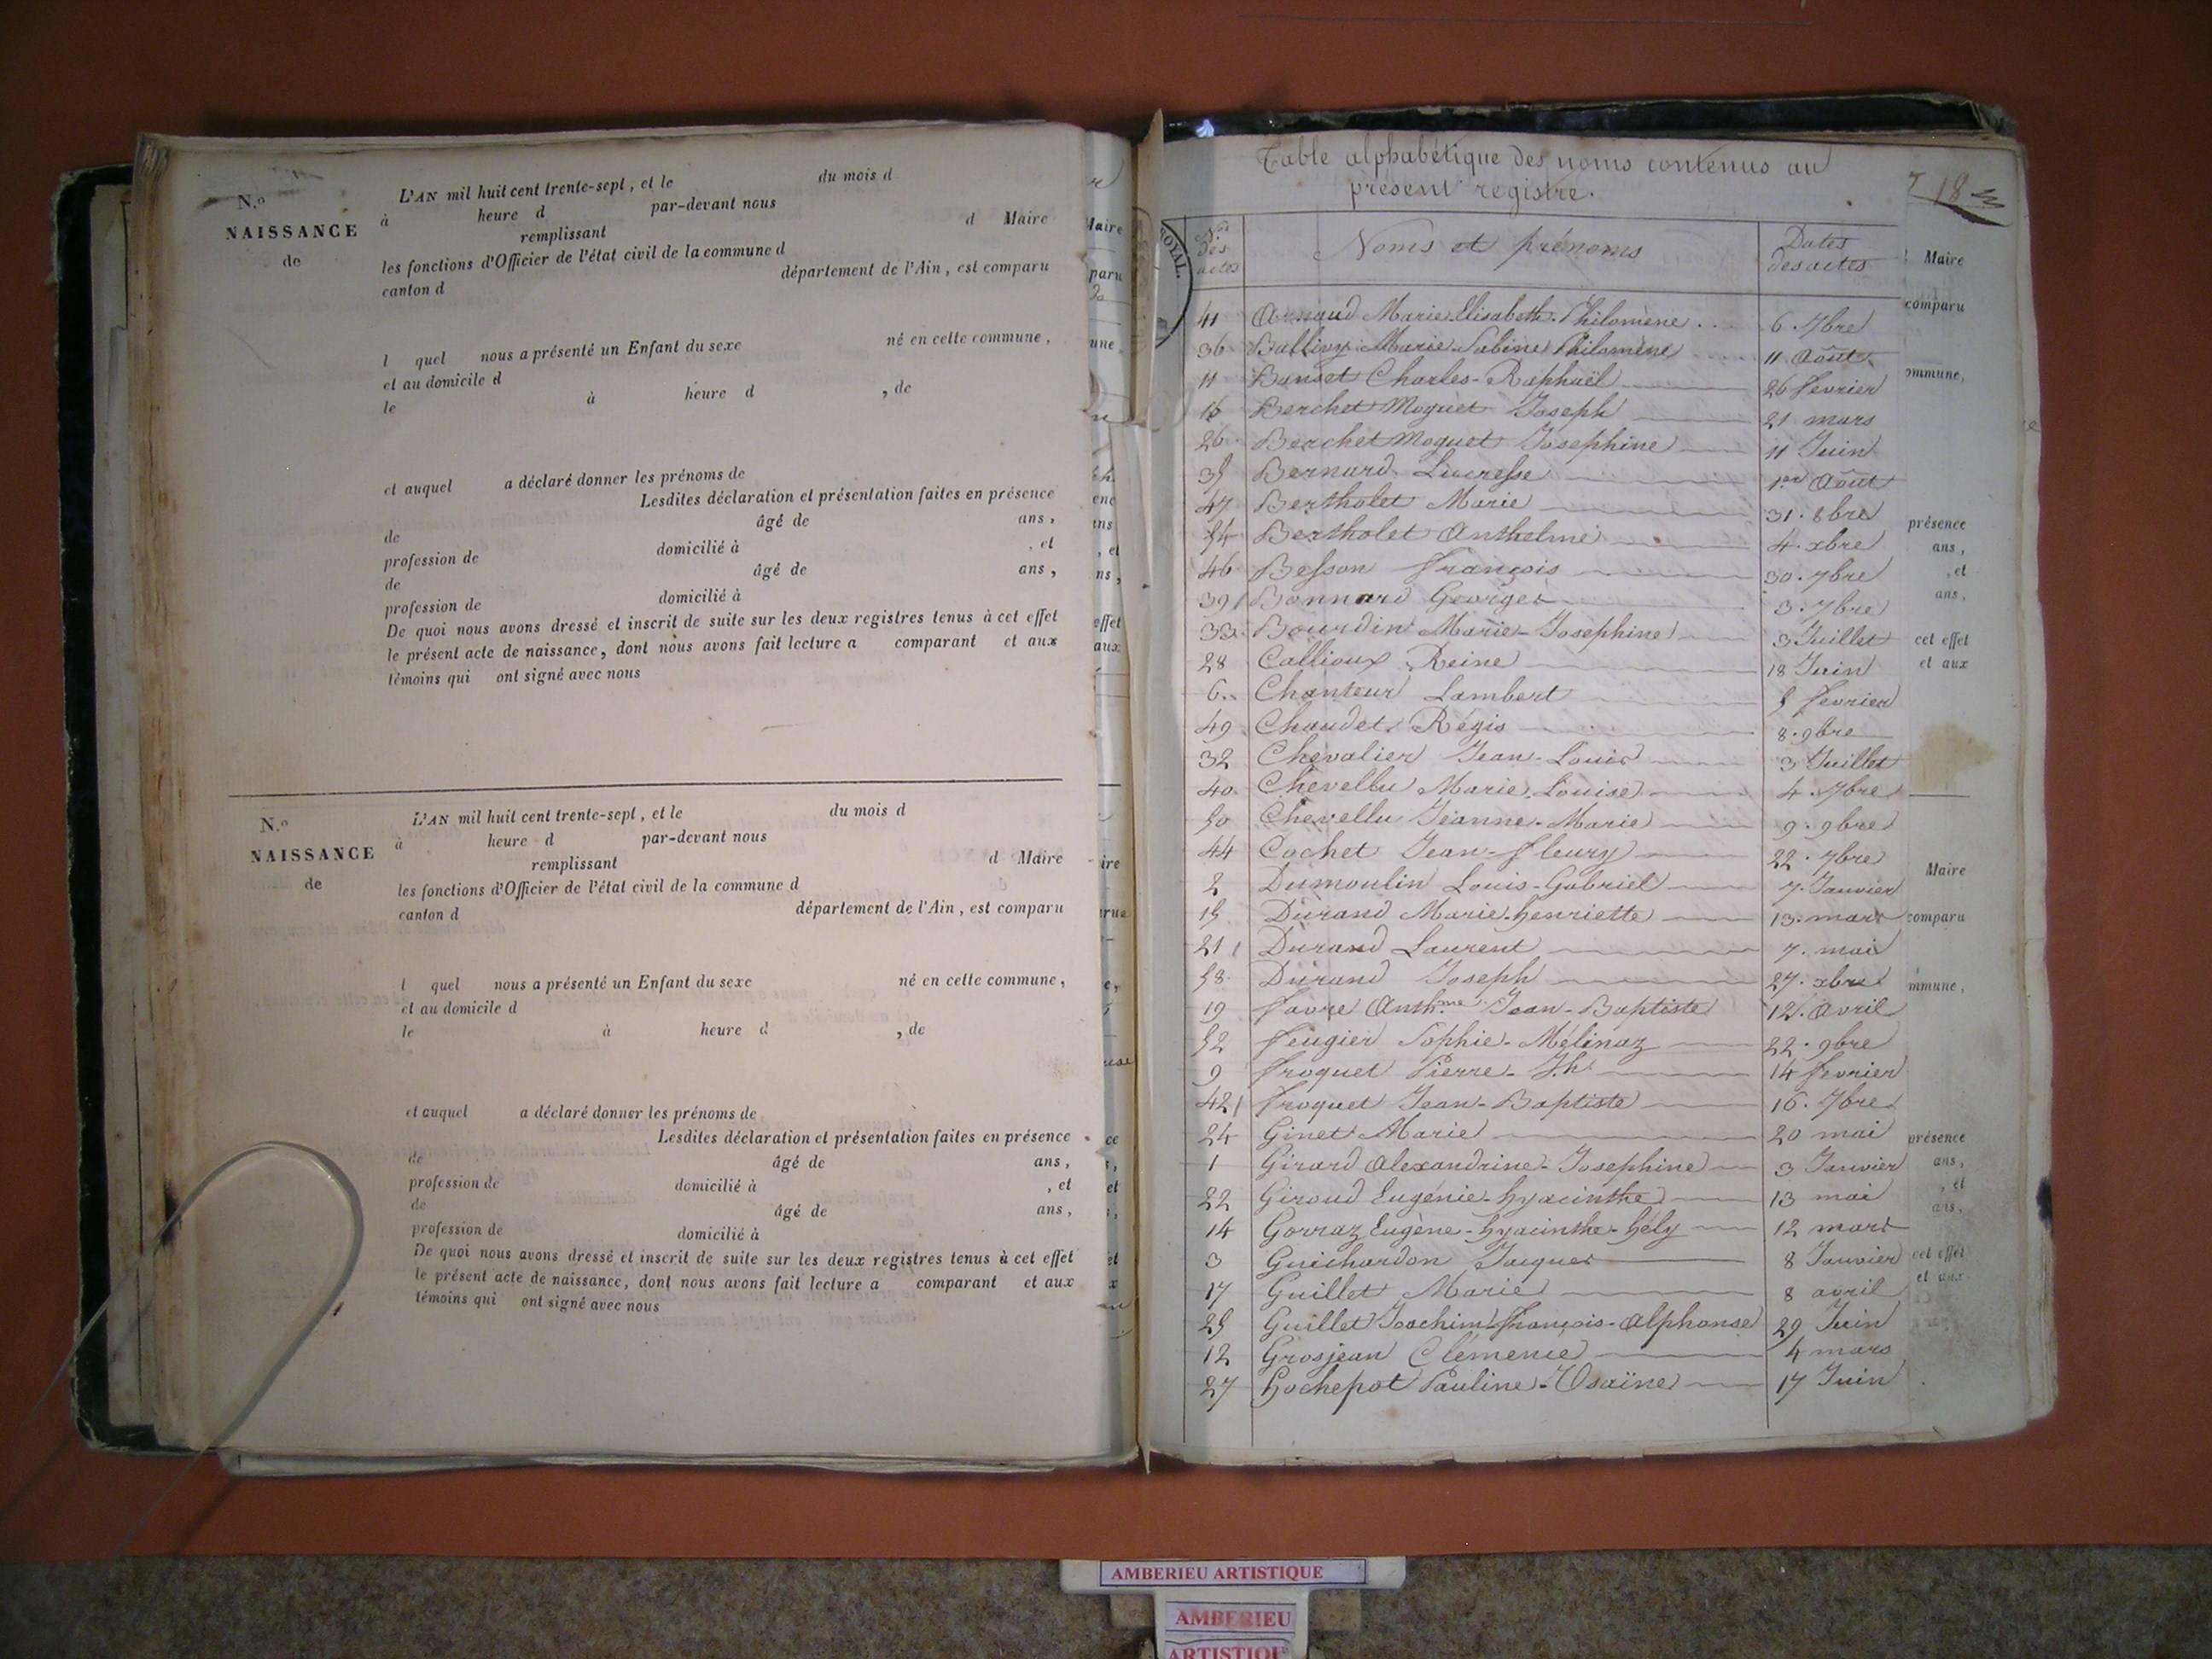 N.o
NAISSANCE
de
L'AN mil huit cent trente-sept, et le du mois d
à heure d par-devant nous
remplissant d Maire
les fonctions d'Officier de l'état civil de la commune d
canton d département de l'Ain, est comparu
l quel nous a présenté un Enfant du sexe né en cette commune,
et au domicile d
le à heure d , de
et auquel a déclaré donner les prénoms de
Lesdites déclaration et présentation faites en présence
de âgé de ans,
profession de domicilié à , et
de âgé de ans,
profession de domicilié à
De quoi nous avons dressé et inscrit de suite sur les deux registres tenus à cet effet
le présent acte de naissance, dont nous avons fait lecture a comparant et aux
témoins qui ont signé avec nous
N.o
NAISSANCE
de
L'AN mil huit cent trente-sept, et le du mois d
à heure d par-devant nous
remplissant d Maire
les fonctions d'Officier de l'état civil de la commune d
canton d département de l'Ain, est comparu
l quel nous a présenté un Enfant du sexe né en cette commune,
et au domicile d
le à heure d , de
et auquel a déclaré donner les prénoms de
Lesdites déclaration et présentation faites en présence
de âgé de ans,
profession de domicilié à , et
de âgé de ans,
profession de domicilié à
De quoi nous avons dressé et inscrit de suite sur les deux registres tenus à cet effet
le présent acte de naissance, dont nous avons fait lecture a comparant et aux
témoins qui ont signé avec nous
Table alphabétique des noms contenus au
présent registre.
18
Nos des actes Noms et prénoms Dates des actes
41 Arnaud Marie Elisabeth Philomène 6. 7bre
36 Ballivy Marie Sabine Philomène 11 Août
11 Banset Charles-Raphaël 26 fevrier
16 Berchet Moguet Joseph 21 mars
26 Berchet Moguet Josephine 11 Juin
35 Bernard Lucresse 1er Août
47 Bertholet Marie 31. 8bre
54 Bertholet Anthelme 4. xbre
46 Besson François 30. 7bre
39 Bonnard Georges 3. 7bre
33 Bourdin Marie-Josephine 3 Juillet
28 Callioux Reine 18 Juin
6 Chanteur Lambert 5 fevrier
49 Chaudet Régis 8. 9bre
32 Chevalier Jean-Louis 3 Juillet
40 Chevellu Marie Louise 4. 7bre
50 Chevellu Jeanne-Marie 9. 9bre
44 Cochet Jean-fleury 22. 7bre
2 Dumoulin Louis-Gabriel 7. Janvier
15 Durand Marie-henriette 13. mars
21 Durand Laurent 7. mai
58 Durand Joseph 27. xbre
19 favre Anth.me Jean-Baptiste 12. Avril
52 feugier Sophie-Mélinaz 22. 9bre
9 froquet Pierre-J.h 14 fevrier
42 froquet Jean-Baptiste 16. 7bre
24 Ginet Marie 20 mai
1 Girard Alexandrine-Josephine 3 Janvier
22 Giroud Eugénie-hyacinthe 13 mai
14 Gorraz Eugène-hyacinthe-hély 12 mars
3 Guichardon Jacques 8 Janvier
17 Guillet Marie 8 avril
29 Guillet Joachim-françois-Alphonse 29 Juin
12 Grosjean Clémence 4 mars
27 hochepot Pauline-Osaïne 17 Juin
Maire
comparu
ommune,
présence
ans,
, et
ans,
cet effet
et aux
Maire
comparu
mmune,
présence
ans,
, et
ans,
cet effet
et aux
AMBERIEU ARTISTIQUE
AMBERIEU
ARTISTIQUE